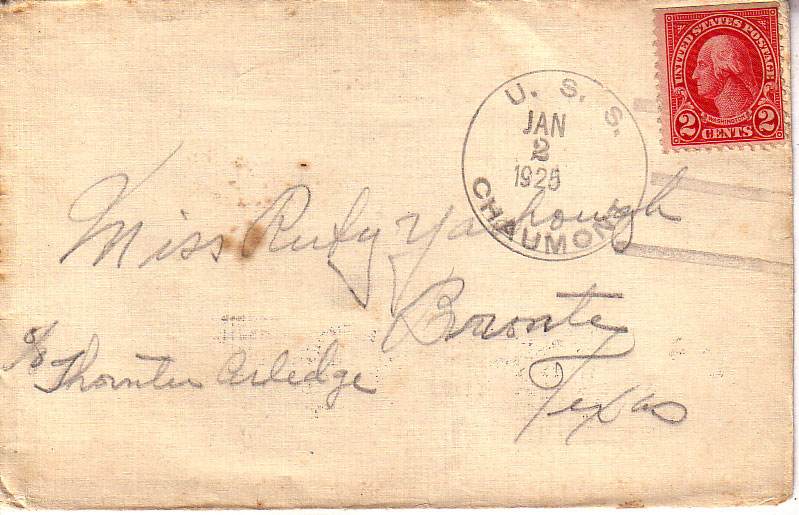 UNITED STATES POSTAGE
WASHINGTON
2 CENTS 2
U. S. S.
JAN
2
1925
CHAUMONT
Miss Ruby Yarbrough
Bronte
Texas
c/o Thornton Arledge